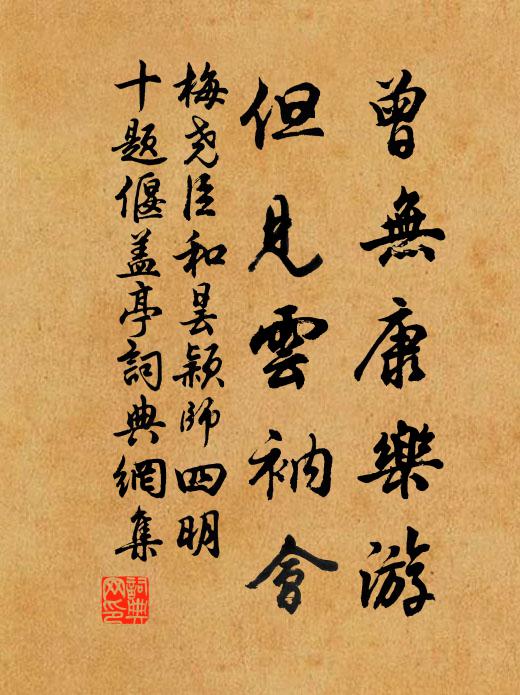 曾無康樂游
但見雲衲會
梅尧臣和昙颖師四明
十题偃盖亭詞典網集
詞典网印